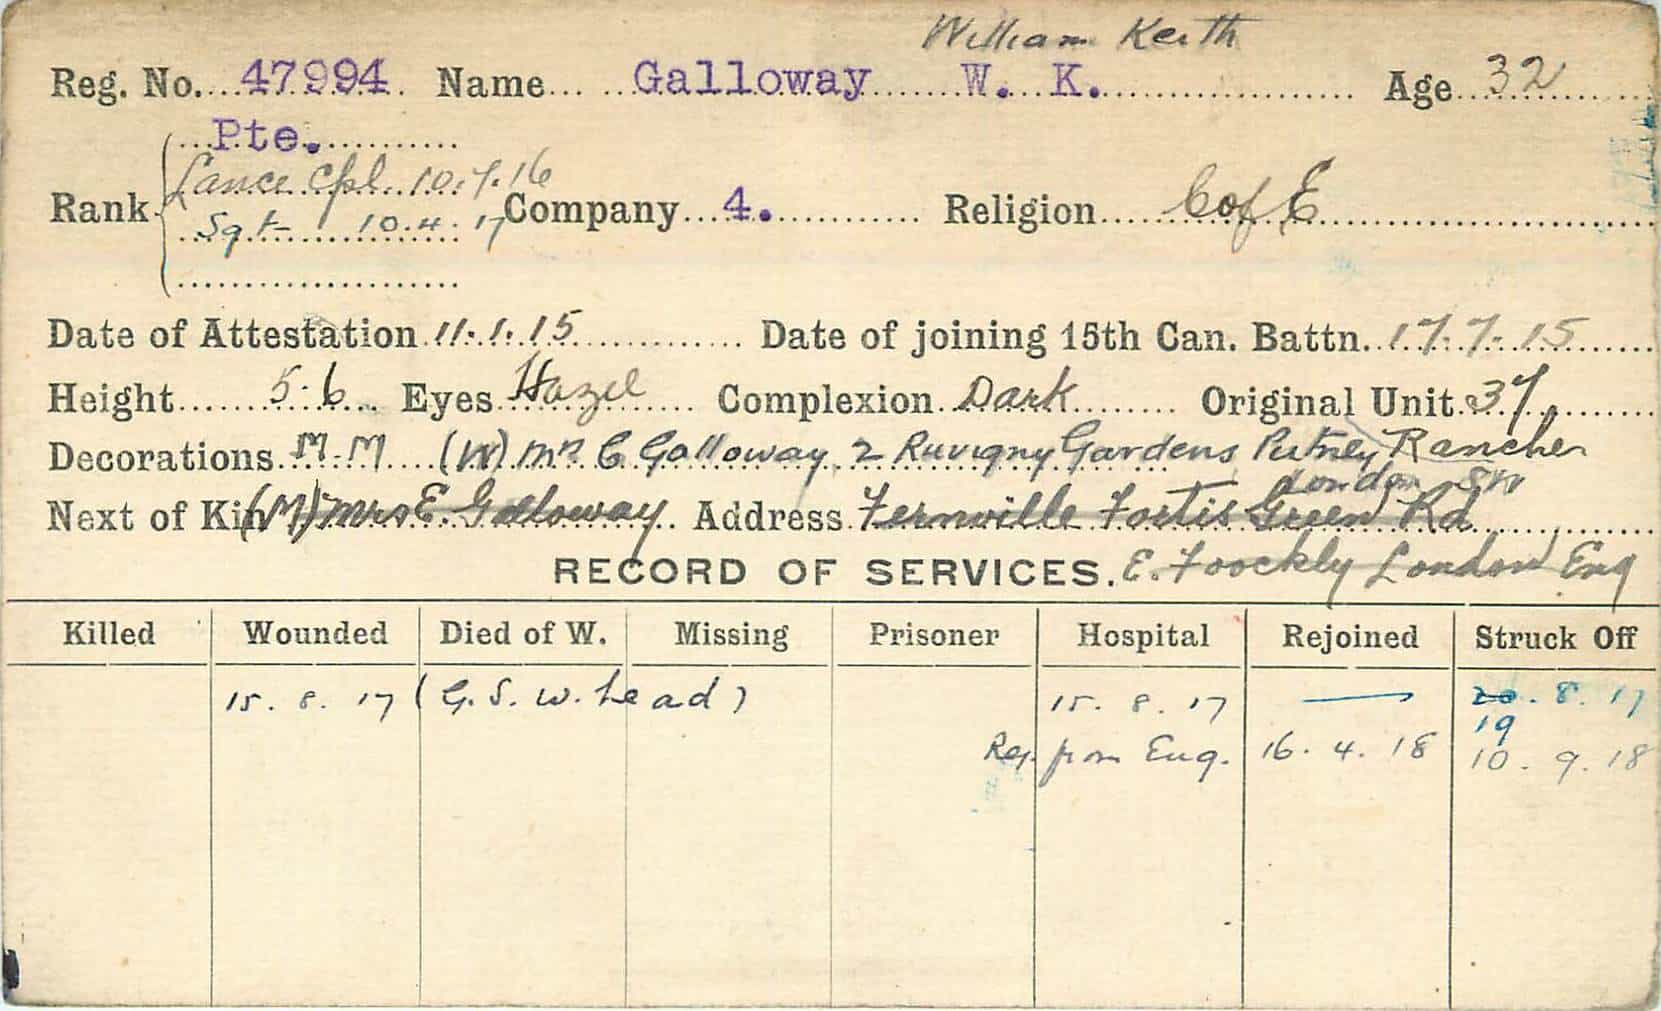 William Keith
Reg. No. 47994 Name Galloway W. K. Age 32
Pte.
Lance Cpl. 10.7.16
Rank Company 4. Religion C of E
Sgt 10.4.17
Date of Attestation 11.1.15 Date of joining 15th Can. Battn. 17.7.15
Height 5.6 Eyes Hazel Complexion Dark Original Unit 37
Decorations M.M (W) Mrs C Galloway 2 Ruvigny Gardens Putney Rancher
London SW
Next of Kin (M) Mrs E. Galloway Address Fernville Fortis Green Rd
RECORD OF SERVICES. E. London Eng
Killed Wounded Died of W. Missing Prisoner Hospital Rejoined Struck Off
15.8.17 (G.S.W. head) 15.8.17 — 20.8.17
19
Rej. from Eng. 16.4.18 10.9.18